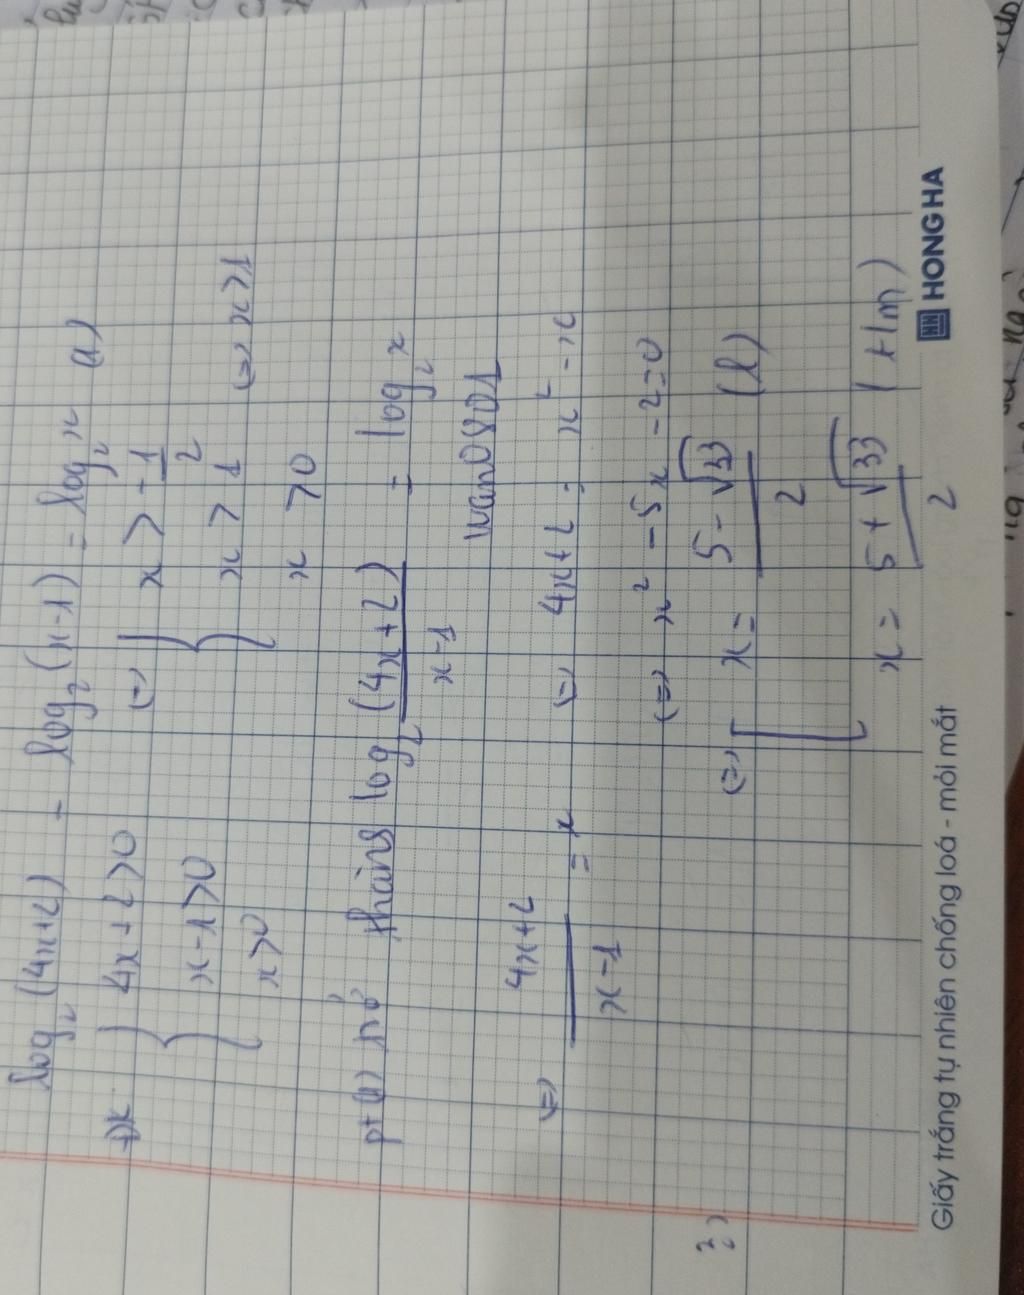 log₂(4x+2) - log₂(x-1) = log₂x (1)
ĐK { 4x+2>0 (=) { x > -1/2
x-1>0 x > 1 (=) x>1
x>0 x >0
pt (1) trở thành log₂ (4x+2)/(x-1) = log₂ x
wano801
(=) (4x+2)/(x-1) = x (=) 4x+2 = x² - x
(=) x² - 5x - 2=0
(=) [ x = (5 - √33)/2 (l)
x = (5 + √33)/2 (tm)
2)
Giấy trắng tự nhiên chống loá - mỏi mắt HH HONG HA